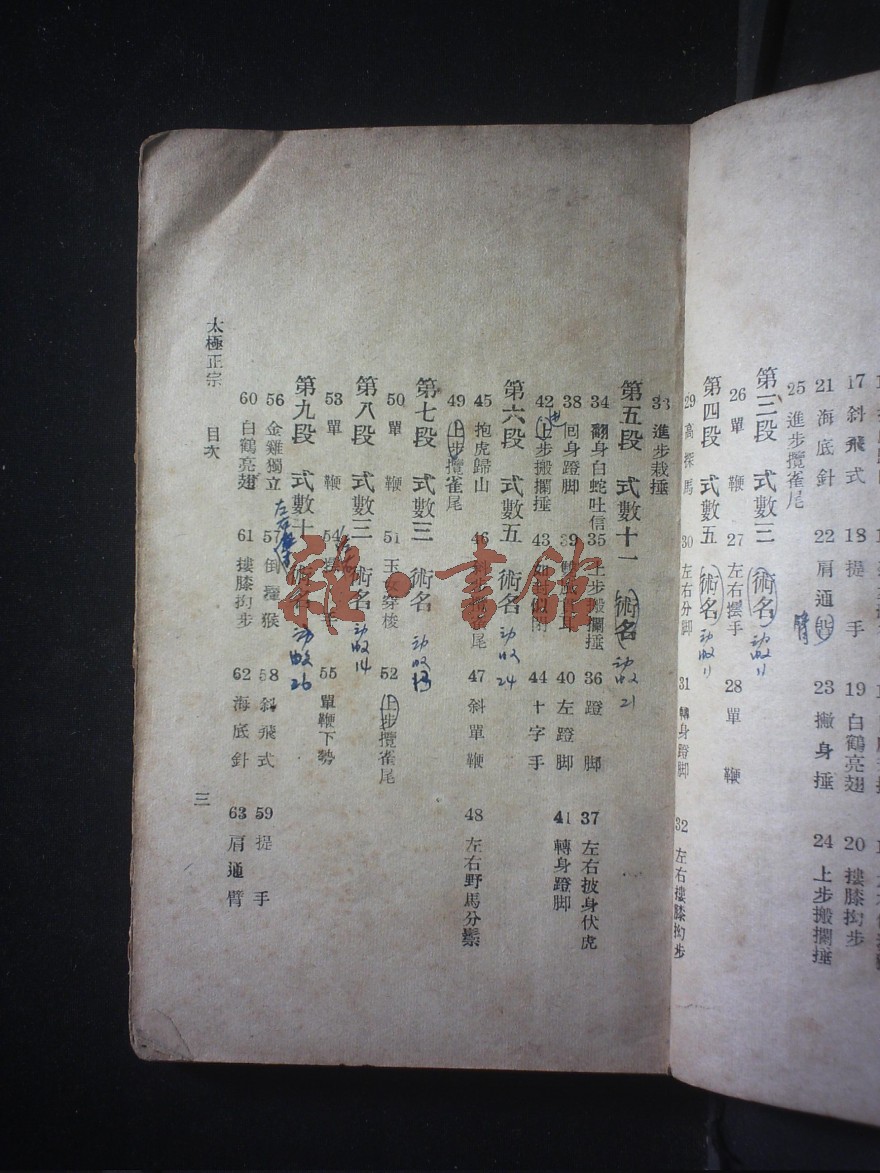 17 斜飛式 18 提手 19 白鶴亮翅 20 摟膝拗步
21 海底針 22 肩通 臂 23 撇身捶 24 上步搬攔捶
25 進步攬雀尾
第三段 式數三 術名 動收11
26 單鞭 27 左右擺手 28 單鞭
第四段 式數五 術名 動收11
29 高探馬 30 左右分脚 31 轉身蹬脚 32 左右摟膝拗步
33 進步栽捶
第五段 式數十一 術名 動收21
34 翻身白蛇吐信 35 上步搬攔捶 36 蹬脚 37 左右披身伏虎
38 囘身蹬脚 39 40 左蹬脚 41 轉身蹬脚
42 上步搬攔捶 43 44 十字手
第六段 式數五 術名 動收24
45 抱虎歸山 46 尾 47 斜單鞭 48 左右野馬分鬃
49 上步攬雀尾
第七段 式數三 術名 動收
50 單鞭 51 玉女穿梭 52 上步攬雀尾
第八段 式數三 術名 動收14
53 單鞭 54 手 55 單鞭下勢
第九段 式數十 術名 動收26
56 金雞獨立 左右 57 倒攆猴 58 斜飛式 59 提手
60 白鶴亮翅 61 摟膝拗步 62 海底針 63 肩通臂
太極正宗 目次 三
雜·書館